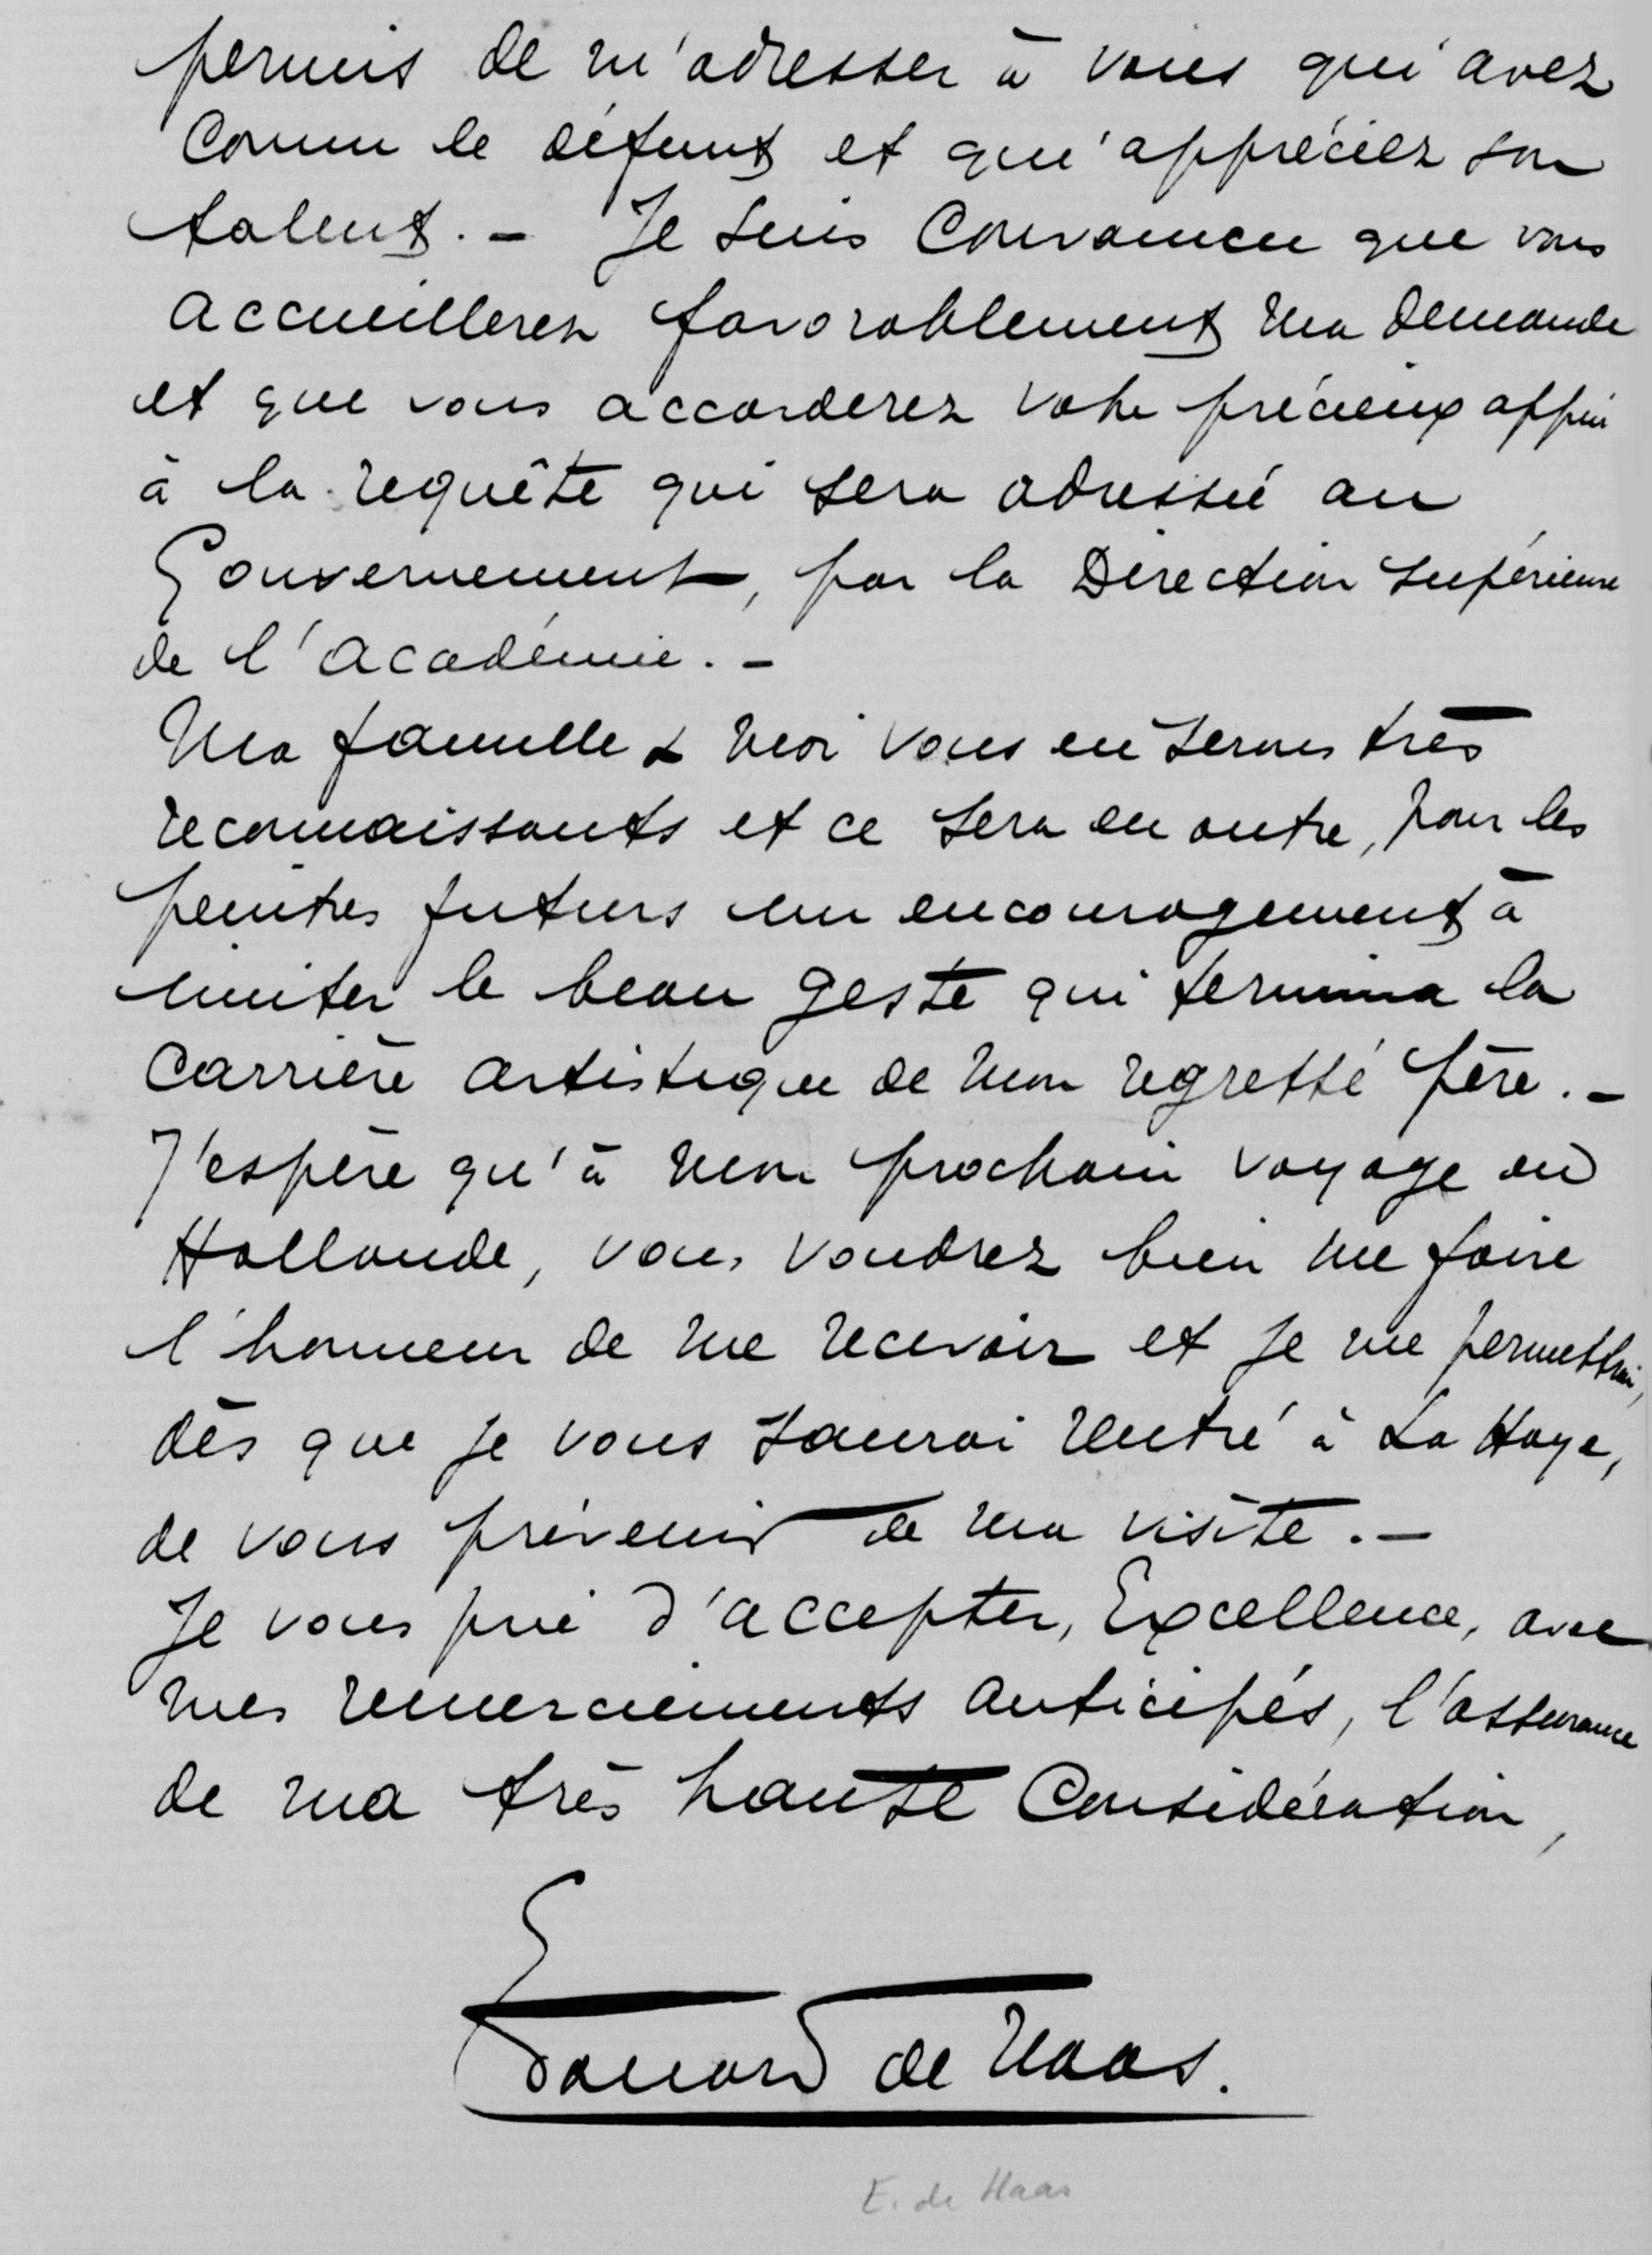 permis de m'adresser à vous qui avez
connu le défunt et qui appréciez son
talent. – Je suis convaincu que vous
accueillerez favorablement ma demande
et que vous accorderez votre précieux appui
à la requête qui sera adressée au
Gouvernement, par la Direction supérieure
de l'académie. –
Ma famille & moi vous en serons très
reconnaissants et ce sera en outre, pour les
peintres futurs un encouragement à
imiter le beau geste qui termina la
carrière artistique de mon regretté père. –
J'espère qu'à mon prochain voyage en
Hollande, vous voudrez bien me faire
l'honneur de me recevoir et je me permettrai,
dès que je vous saurai rentré à La Haye,
de vous prévenir de ma visite. –
Je vous prie d'accepter, Excellence, avec
mes remerciements anticipés, l'assurance
de ma très haute considération,
Edouard de Haas.
E. de Haas